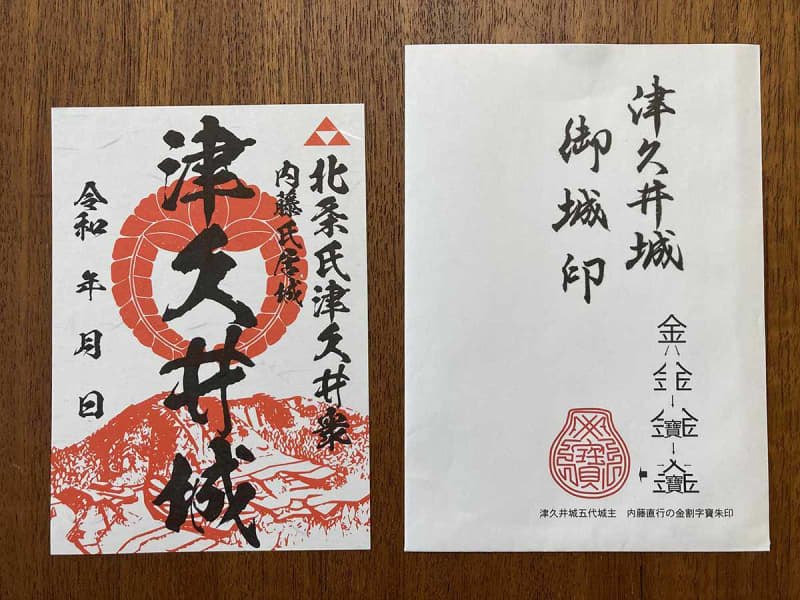 北条氏津久井衆
内藤氏居城
津久井城
令和 年 月 日
津久井城
御城印
金
寶
津久井城五代城主 内藤直行の金割字寶朱印